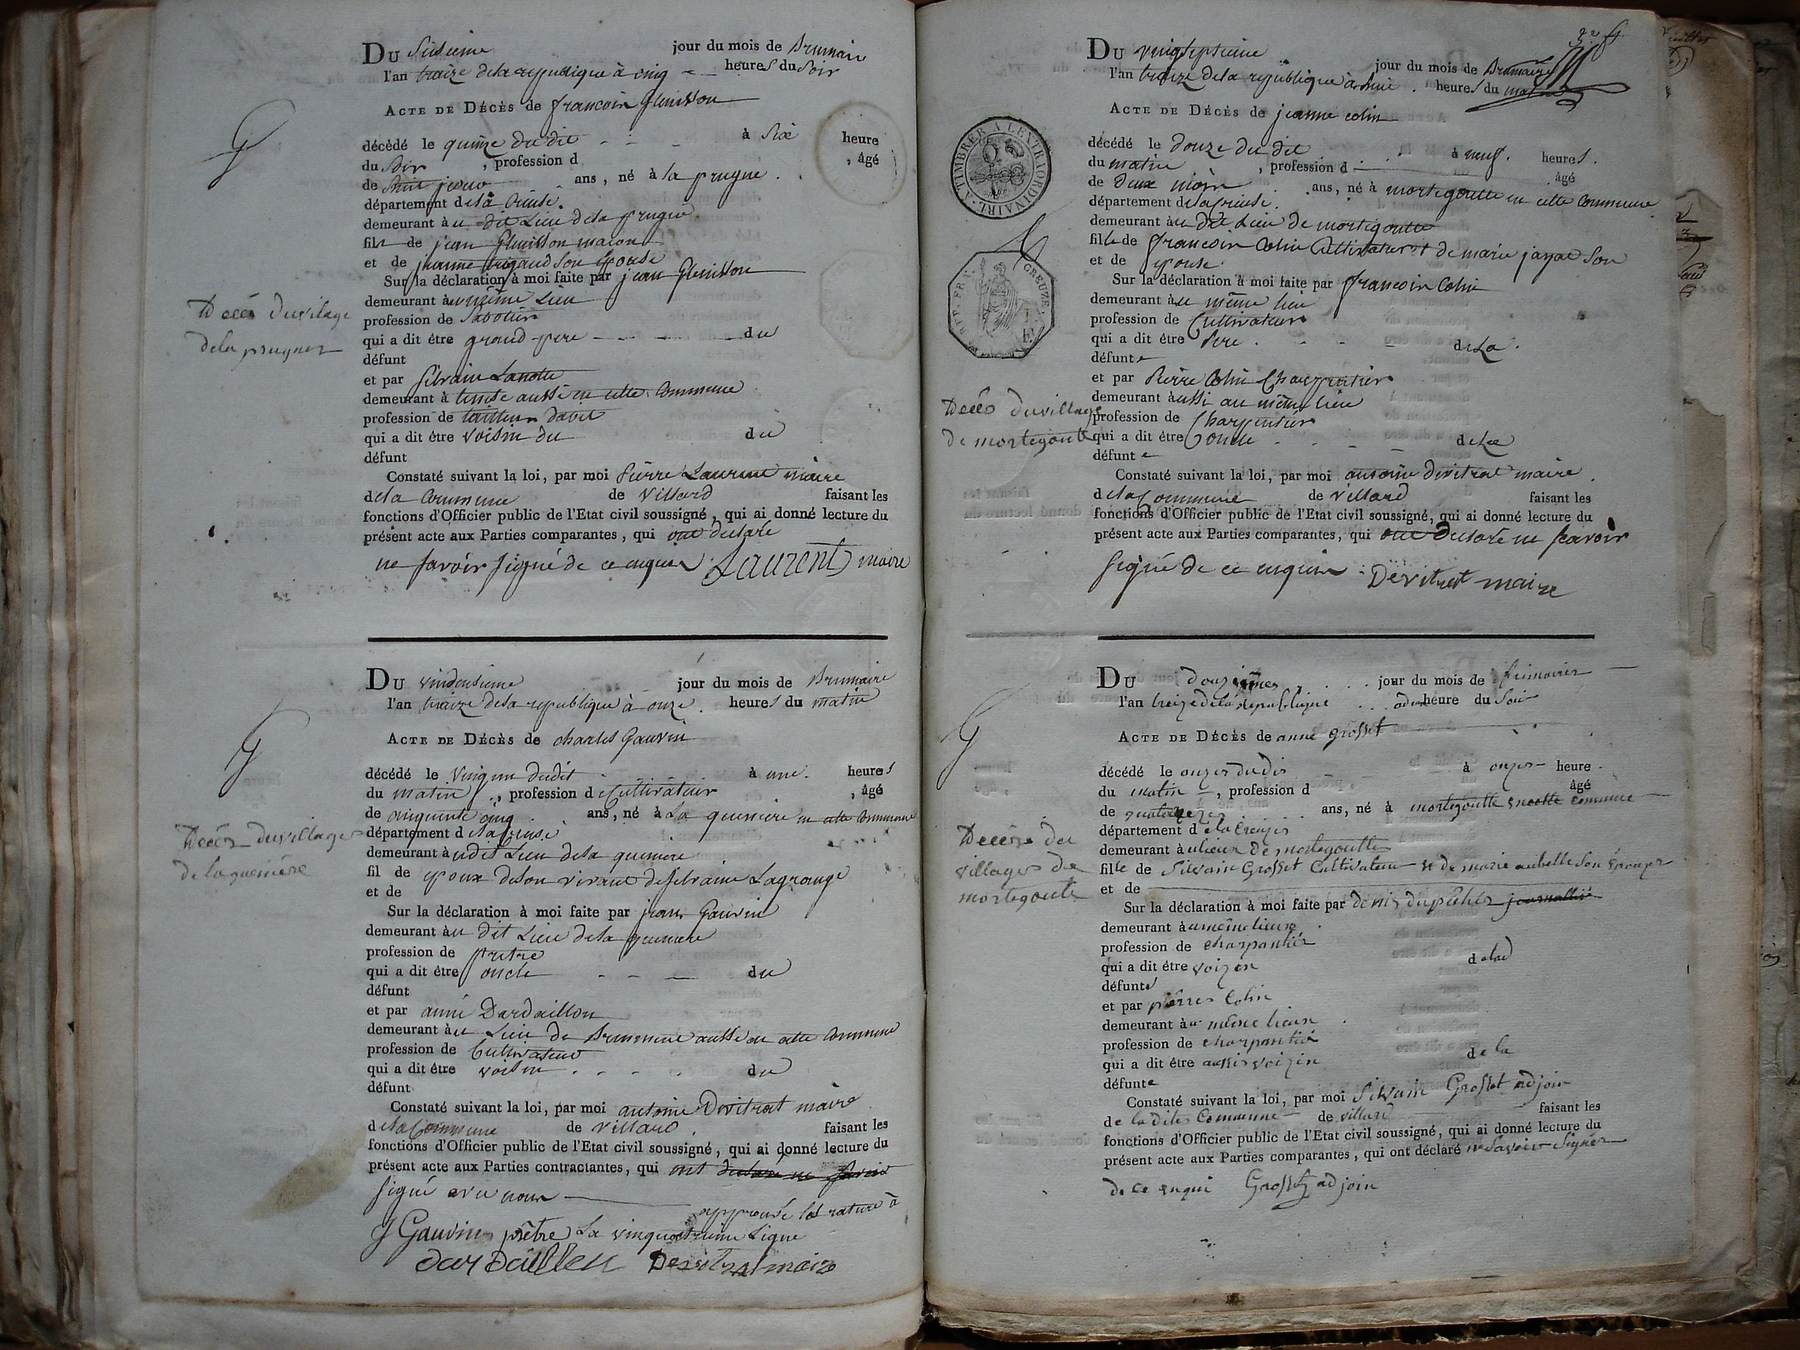 Du Sisieme jour du mois de Brumaire
l'an traize de la republique à cinq heures du soir
Acte de Décès de francoix
décédé le quinze du dit à Six heure
du Soir, profession d , âgé
de ans, né à la prugne.
département de la Creuse.
demeurant au dit Lieu de la prugne
fils de jean macon
et de jeanne son Epouse
Sur la déclaration à moi faite par jean
demeurant au meme Lieu
profession de Sabotier
qui a dit être grand-pere du
défunt
et par Silvain Lanotte
demeurant à aussi en cette Commune
profession de tailleur
qui a dit être voisin du du
défunt
Constaté suivant la loi, par moi Pierre Laurent maire
de la Commune de Villard faisant les
fonctions d'Officier public de l'Etat civil soussigné, qui ai donné lecture du
présent acte aux Parties comparantes, qui ont declaré
ne savoir signé de ce enquis Laurent maire
Deces du vilage
de la prugner
Du vindeusieme jour du mois de Brumaire
l'an traize de la republique à onze. heures du matin
Acte de Décès de charles Gauvin
décédé le vingun dudit à une. heures
du matin, profession de Cultivateur, âgé
de cinquente cinq ans, né à La quemiere en cette Commune
département de la Creuse
demeurant au dit Lieu de la quemiere
fil de Epoux de son vivant de Silvaine Lagrange
et de
Sur la déclaration à moi faite par jean Gauvin
demeurant au dit Lieu de la quemiere
profession de pretre
qui a dit être oncle du
défunt
et par anné Dardaillon
demeurant au Lieu de aussi en cette Commune
profession de Cultivateur
qui a dit être voisin du
défunt
Constaté suivant la loi, par moi antoine Devitrat maire
de la Commune de Villard. faisant les
fonctions d'Officier public de l'Etat civil soussigné, qui ai donné lecture du
présent acte aux Parties contractantes, qui ont declaré ne savoir
signé avec nous
approuvé les rature à
J Gauvin prêtre La Ligne
dardaillon Devitrat maire
Décès du village
de la quemiere
Du vingseptieme jour du mois de Brumaire
l'an traize de la republique à heures du matin
Acte de Décès de jeanne colin
décédé le douze du dit à neuf. heures.
du matin, profession d âgé
de deux mois ans, né à mortegoutte en cette Commune
département de la Creuse.
demeurant au dit Lieu de mortegoutte
fille de francoix Colin Cultivateur et de marie jarjat Son
et de Epouse.
Sur la déclaration à moi faite par francoix Colin
demeurant au même lieu
profession de Cultivateur
qui a dit être Pere. de La.
défunte
et par Pierre Colin Charpentier
demeurant aussi au même lieu
profession de Charpentier
qui a dit être Loncle de La
défunte
Constaté suivant la loi, par moi antoine Devitrat maire.
de la Commune de Villard faisant les
fonctions d'Officier public de l'Etat civil soussigné, qui ai donné lecture du
présent acte aux Parties comparantes, qui ont declaré ne savoir
signé de ce enquis. Devitrat maire
A TIMBRER A L'EXTRAORDINAIRE
REP. FRA. CREUZE.
Décès du village
de mortegoutte
Du douzième jour du mois de frimaire
l'an treize de la republique a deux heure du Soir
Acte de Décès de anne Grosset
décédé le onze du dis à onze heure.
du matin, profession d âgé
de ans, né à mortegoutte commune
département de la Creuze
demeurant au lieux de mortegoutte
fille de Silvain Grosset Cultivateur et de marie aubelle Son Epouze
et de
Sur la déclaration à moi faite par denis journallié
demeurant au même lieux
profession de charpantié
qui a dit être voizin de la
défunte
et par pierre Colin
demeurant au même lieux
profession de charpantié
qui a dit être aussi voizin de la
défunte
Constaté suivant la loi, par moi Silvain Grosset adjoin
de la dite Commune de villard faisant les
fonctions d'Officier public de l'Etat civil soussigné, qui ai donné lecture du
présent acte aux Parties comparantes, qui ont déclaré ne Savoir Signer
de ce enqui Grosset adjoin
Décès du
village de
mortegoute